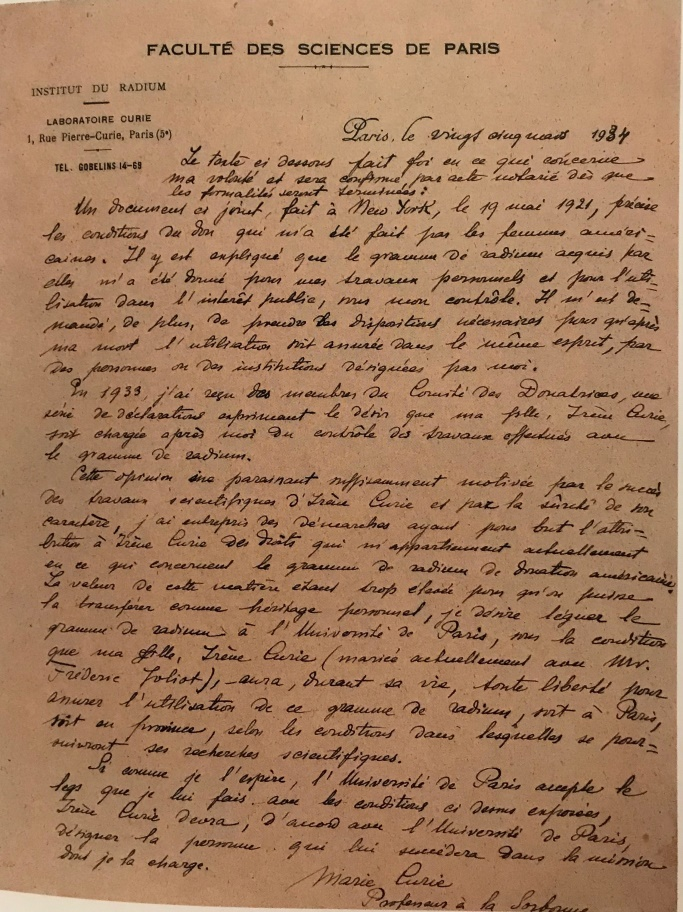 FACULTÉ DES SCIENCES DE PARIS
INSTITUT DU RADIUM
LABORATOIRE CURIE
1, Rue Pierre-Curie, Paris (5e)
TEL. GOBELINS 14-69
Paris, le vingt cinq mars 1934
Le texte ci dessous fait foi en ce qui concerne
ma volonté et sera confirmé par acte notarié dès que
les formalités seront terminées:
Un document ci joint, fait à New York, le 19 mai 1921, précise
les conditions du don qui m'a été fait par les femmes améri-
caines. Il y est expliqué que le gramme de radium acquis par
elles m'a été donné pour mes travaux personnels et pour l'uti-
lisation dans l'intérêt public, sous mon contrôle. Il m'est de-
mandé, de plus, de prendre les dispositions nécessaires pour qu'après
ma mort l'utilisation soit assurée dans le même esprit, par
des personnes ou des institutions désignées par moi.
En 1933, j'ai reçu des membres du Comité des Donatrices, une
série de déclarations exprimant le désir que ma fille, Irène Curie,
soit chargée après moi du contrôle des travaux effectués avec
le gramme de radium.
Cette opinion me paraissant suffisamment motivée par le succès
des travaux scientifiques d'Irène Curie et par la sûreté de son
caractère, j'ai entrepris des démarches ayant pour but l'attri-
bution à Irène Curie des droits qui m'appartiennent actuellement
en ce qui concernent le gramme de radium de donation américaine.
La valeur de cette matière étant trop élevée pour qu'on puisse
la transférer comme héritage personnel, je désire léguer le
gramme de radium à l'Université de Paris, sous la condition
que ma fille, Irène Curie (mariée actuellement avec Mr.
Frédéric Joliot), aura, durant sa vie, toute liberté pour
assurer l'utilisation de ce gramme de radium, soit à Paris,
soit en province, selon les conditions dans lesquelles se pour-
suivront ses recherches scientifiques.
Si comme je l'espère, l'Université de Paris accepte le
legs que je lui fais avec les conditions ci dessus exposées,
Irène Curie devra, d'accord avec l'Université de Paris,
désigner la personne qui lui succédera dans la mission
dont je la charge.
Marie Curie
Professeur à la Sorbonne